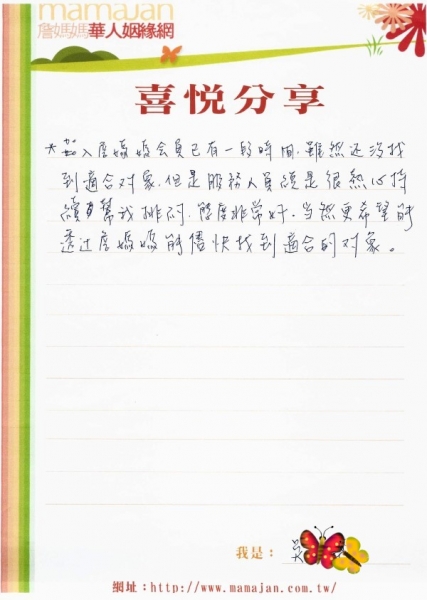 mamajan
詹媽媽華人姻緣網
喜悅分享
入詹媽媽会員已有一段時間,雖然还沒找
到適合对象,但是服務人員總是很熱心持
續幫我排約,態度非常好,当然更希望能
透过詹媽媽能儘快找到適合的对象。
我是:
網址:http://www.mamajan.com.tw/